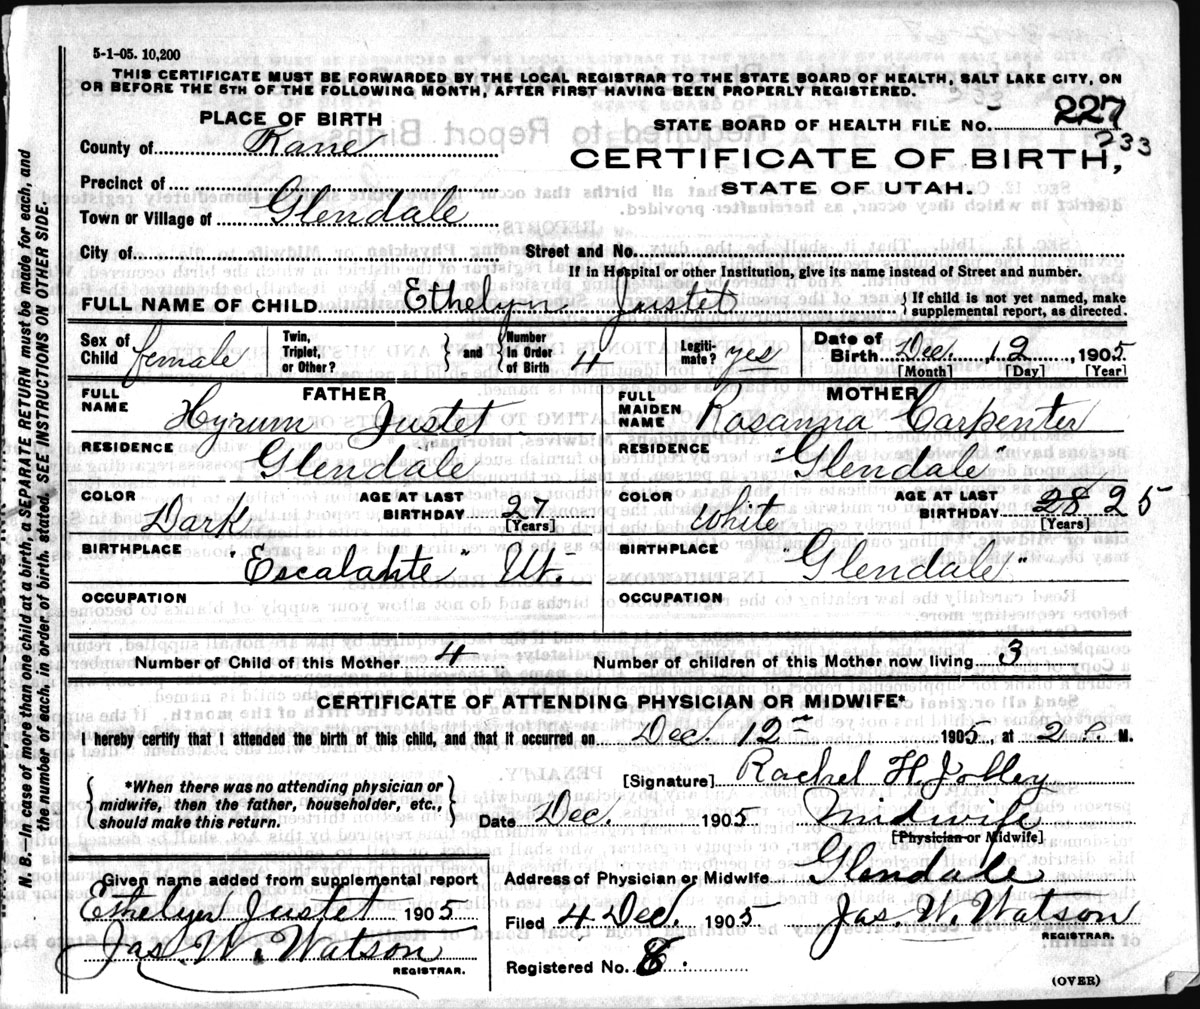 5-1-05. 10,200
THIS CERTIFICATE MUST BE FORWARDED BY THE LOCAL REGISTRAR TO THE STATE BOARD OF HEALTH, SALT LAKE CITY, ON
OR BEFORE THE 5TH OF THE FOLLOWING MONTH, AFTER FIRST HAVING BEEN PROPERLY REGISTERED.
PLACE OF BIRTH
STATE BOARD OF HEALTH FILE NO. 227
233
County of Kane
CERTIFICATE OF BIRTH,
STATE OF UTAH.
Precinct of
Town or Village of Glendale
City of Street and No.
If in Hospital or other Institution, give its name instead of Street and number.
FULL NAME OF CHILD Ethelyn Justet { If child is not yet named, make
supplemental report, as directed.
Sex of Child female Twin, Triplet, or Other? } and { Number in Order of Birth " Legiti-mate? yes Date of Birth Dec. 12, 1905
[Month] [Day] [Year]
FATHER MOTHER
FULL NAME Hyrum Justet FULL MAIDEN NAME Rosanna Carpenter
RESIDENCE Glendale RESIDENCE "Glendale"
COLOR Dark AGE AT LAST BIRTHDAY 27 [Years] COLOR white AGE AT LAST BIRTHDAY 28 25 [Years]
BIRTHPLACE "Escalante" Ut. BIRTHPLACE "Glendale"
OCCUPATION OCCUPATION
Number of Child of this Mother 4 Number of children of this Mother now living 3
CERTIFICATE OF ATTENDING PHYSICIAN OR MIDWIFE*
I hereby certify that I attended the birth of this child, and that it occurred on Dec. 12 1905, at 2 P. M.
[Signature] Rachel H. Jolley
{ *When there was no attending physician or
midwife, then the father, householder, etc.,
should make this return. }
Date Dec. 1905 Midwife
[Physician or Midwife]
Given name added from supplemental report
Address of Physician or Midwife Glendale
Ethelyn Justet 1905
Filed 4 Dec. 1905 Jas W. Watson
REGISTRAR.
Jas. W. Watson
REGISTRAR.
Registered No. 8.
(OVER)
N. B.—In case of more than one child at a birth, a SEPARATE RETURN must be made for each, and
the number of each, in order of birth, stated. SEE INSTRUCTIONS ON OTHER SIDE.